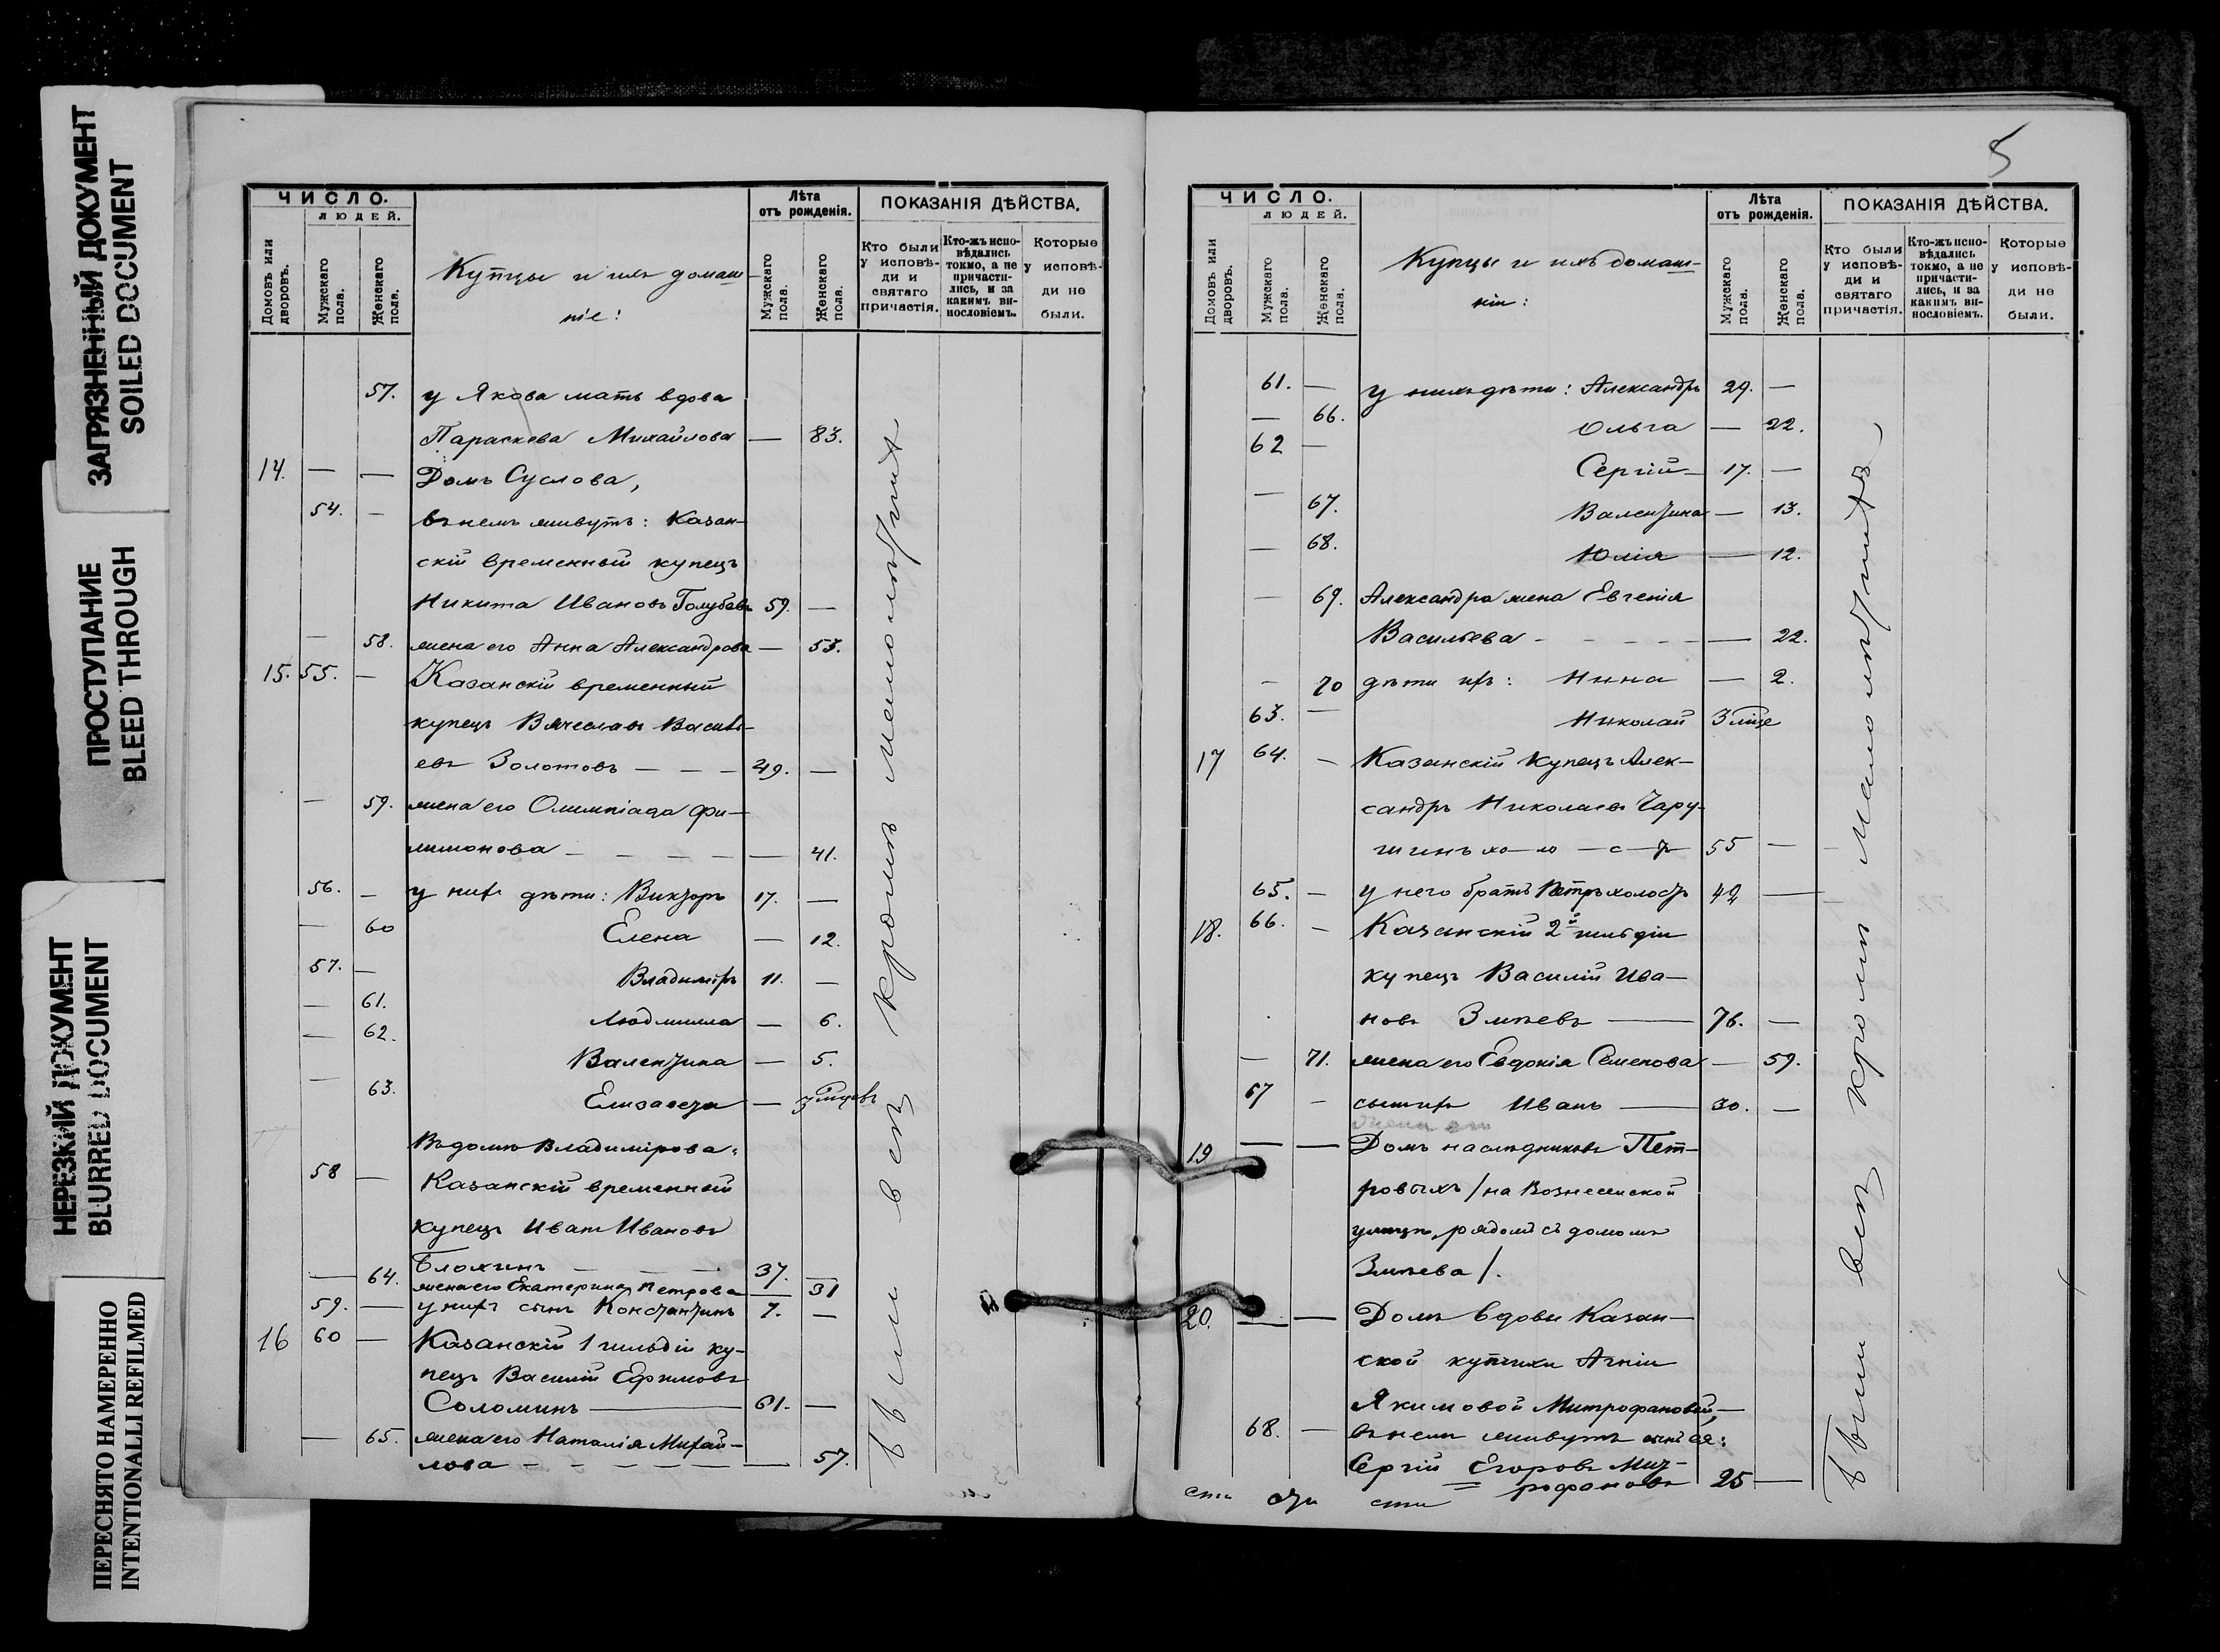 ЗАГРЯЗНЕННЫЙ ДОКУМЕНТ
SOILED DOCUMENT
ПРОСТУПАНИЕ
BLEED THROUGH
НЕРЕЗКИЙ ДОКУМЕНТ
BLURRED DOCUMENT
ПЕРЕСНЯТО НАМЕРЕННО
INTENTIONALLI REFILMED
ЧИСЛО.
ЛЮДЕЙ.
Домовъ или дворовъ.
Мужскаго пола.
Женскаго пола.
Купцы и ихъ домаш-
ніе:
Лѣта
отъ рожденія.
Мужскаго пола.
Женскаго пола.
ПОКАЗАНІЯ ДѢЙСТВА.
Кто были у исповѣ-ди и святаго причастія.
Кто-жъ испо-вѣдались токмо, а не причасти-лись, и за какимъ ви-нословіемъ.
Которые у исповѣ-ди не были.
57. у Якова мать вдова
Параскева Михайлова — 83.
14. — — Домъ Суслова,
54. — въ немъ живутъ: Казан-
скій временный купецъ
Никита Ивановъ Голубевъ 59. —
— 58. жена его Анна Александрова — 53.
15. 55. — Казанскій временный
купецъ Вячеславъ Василь-
евъ Золотовъ — — — 49. —
— 59. жена его Олимпіада Фи-
лимонова — — — — — 41.
56. — у нихъ дѣти: Викторъ 17. —
— 60 Елена — 12.
57. — Владиміръ 11. —
— 61. Людмила — 6.
— 62. Валентина — 5.
— 63. Елизавета —
Въ домѣ Владимірова:
58 — Казанскій временный
купецъ Иванъ Ивановъ
Блохинъ — — — 37. —
— 64. жена его Екатерина Петрова — 31
59. — у нихъ сынъ Константинъ 7. —
16 60 — Казанскій 1 гильдіи ку-
пецъ Василій Ефимовъ
Соломинъ — 61. —
— 65. жена его Наталія Михай-
лова — — — — — — 57.
были всѣ кромѣ
5
ЧИСЛО.
ЛЮДЕЙ.
Домовъ или дворовъ.
Мужскаго пола.
Женскаго пола.
Купцы и ихъ домаш-
ніи:
Лѣта
отъ рожденія.
Мужскаго пола.
Женскаго пола.
ПОКАЗАНІЯ ДѢЙСТВА.
Кто были у исповѣ-ди и святаго причастія.
Кто-жъ испо-вѣдались токмо, а не причасти-лись, и за какимъ ви-нословіемъ.
Которые у исповѣ-ди не были.
61. — у нихъ дѣти: Александръ 29. —
— 66. Ольга — 22.
62 — Сергій — 17. —
— 67. Валентина — 13.
— 68. Юлія — 12.
— 69. Александра жена Евгенія
Васильева - - - - - — 22.
— 70 дѣти ихъ: Нина — 2.
63. — Николай
17 64. — Казанскій купецъ Алек-
сандръ Николаевъ Чару-
шинъ хо—ло—с—тъ 55 —
65. — у него братъ Петръ холостъ 42 —
18. 66. — Казанскій 2й гильдіи
купецъ Василій Ива-
новъ Змѣевъ — 76. —
— 71. жена его Евдокія Семенова — 59.
67 — сынъ ихъ Иванъ — 30. —
19 — — Домъ наслѣдниковъ Пет-
ровыхъ /на Вознесенской
улицѣ, рядомъ съ домомъ
Змѣева/.
20. — — Домъ вдовы Казан-
ской купчихи Агніи
Якимовой Митрофановой,
68. — въ немъ живутъ сынъ ея:
Сергій Егоровъ Мит-
рофановъ 25 —
были всѣ кромѣ